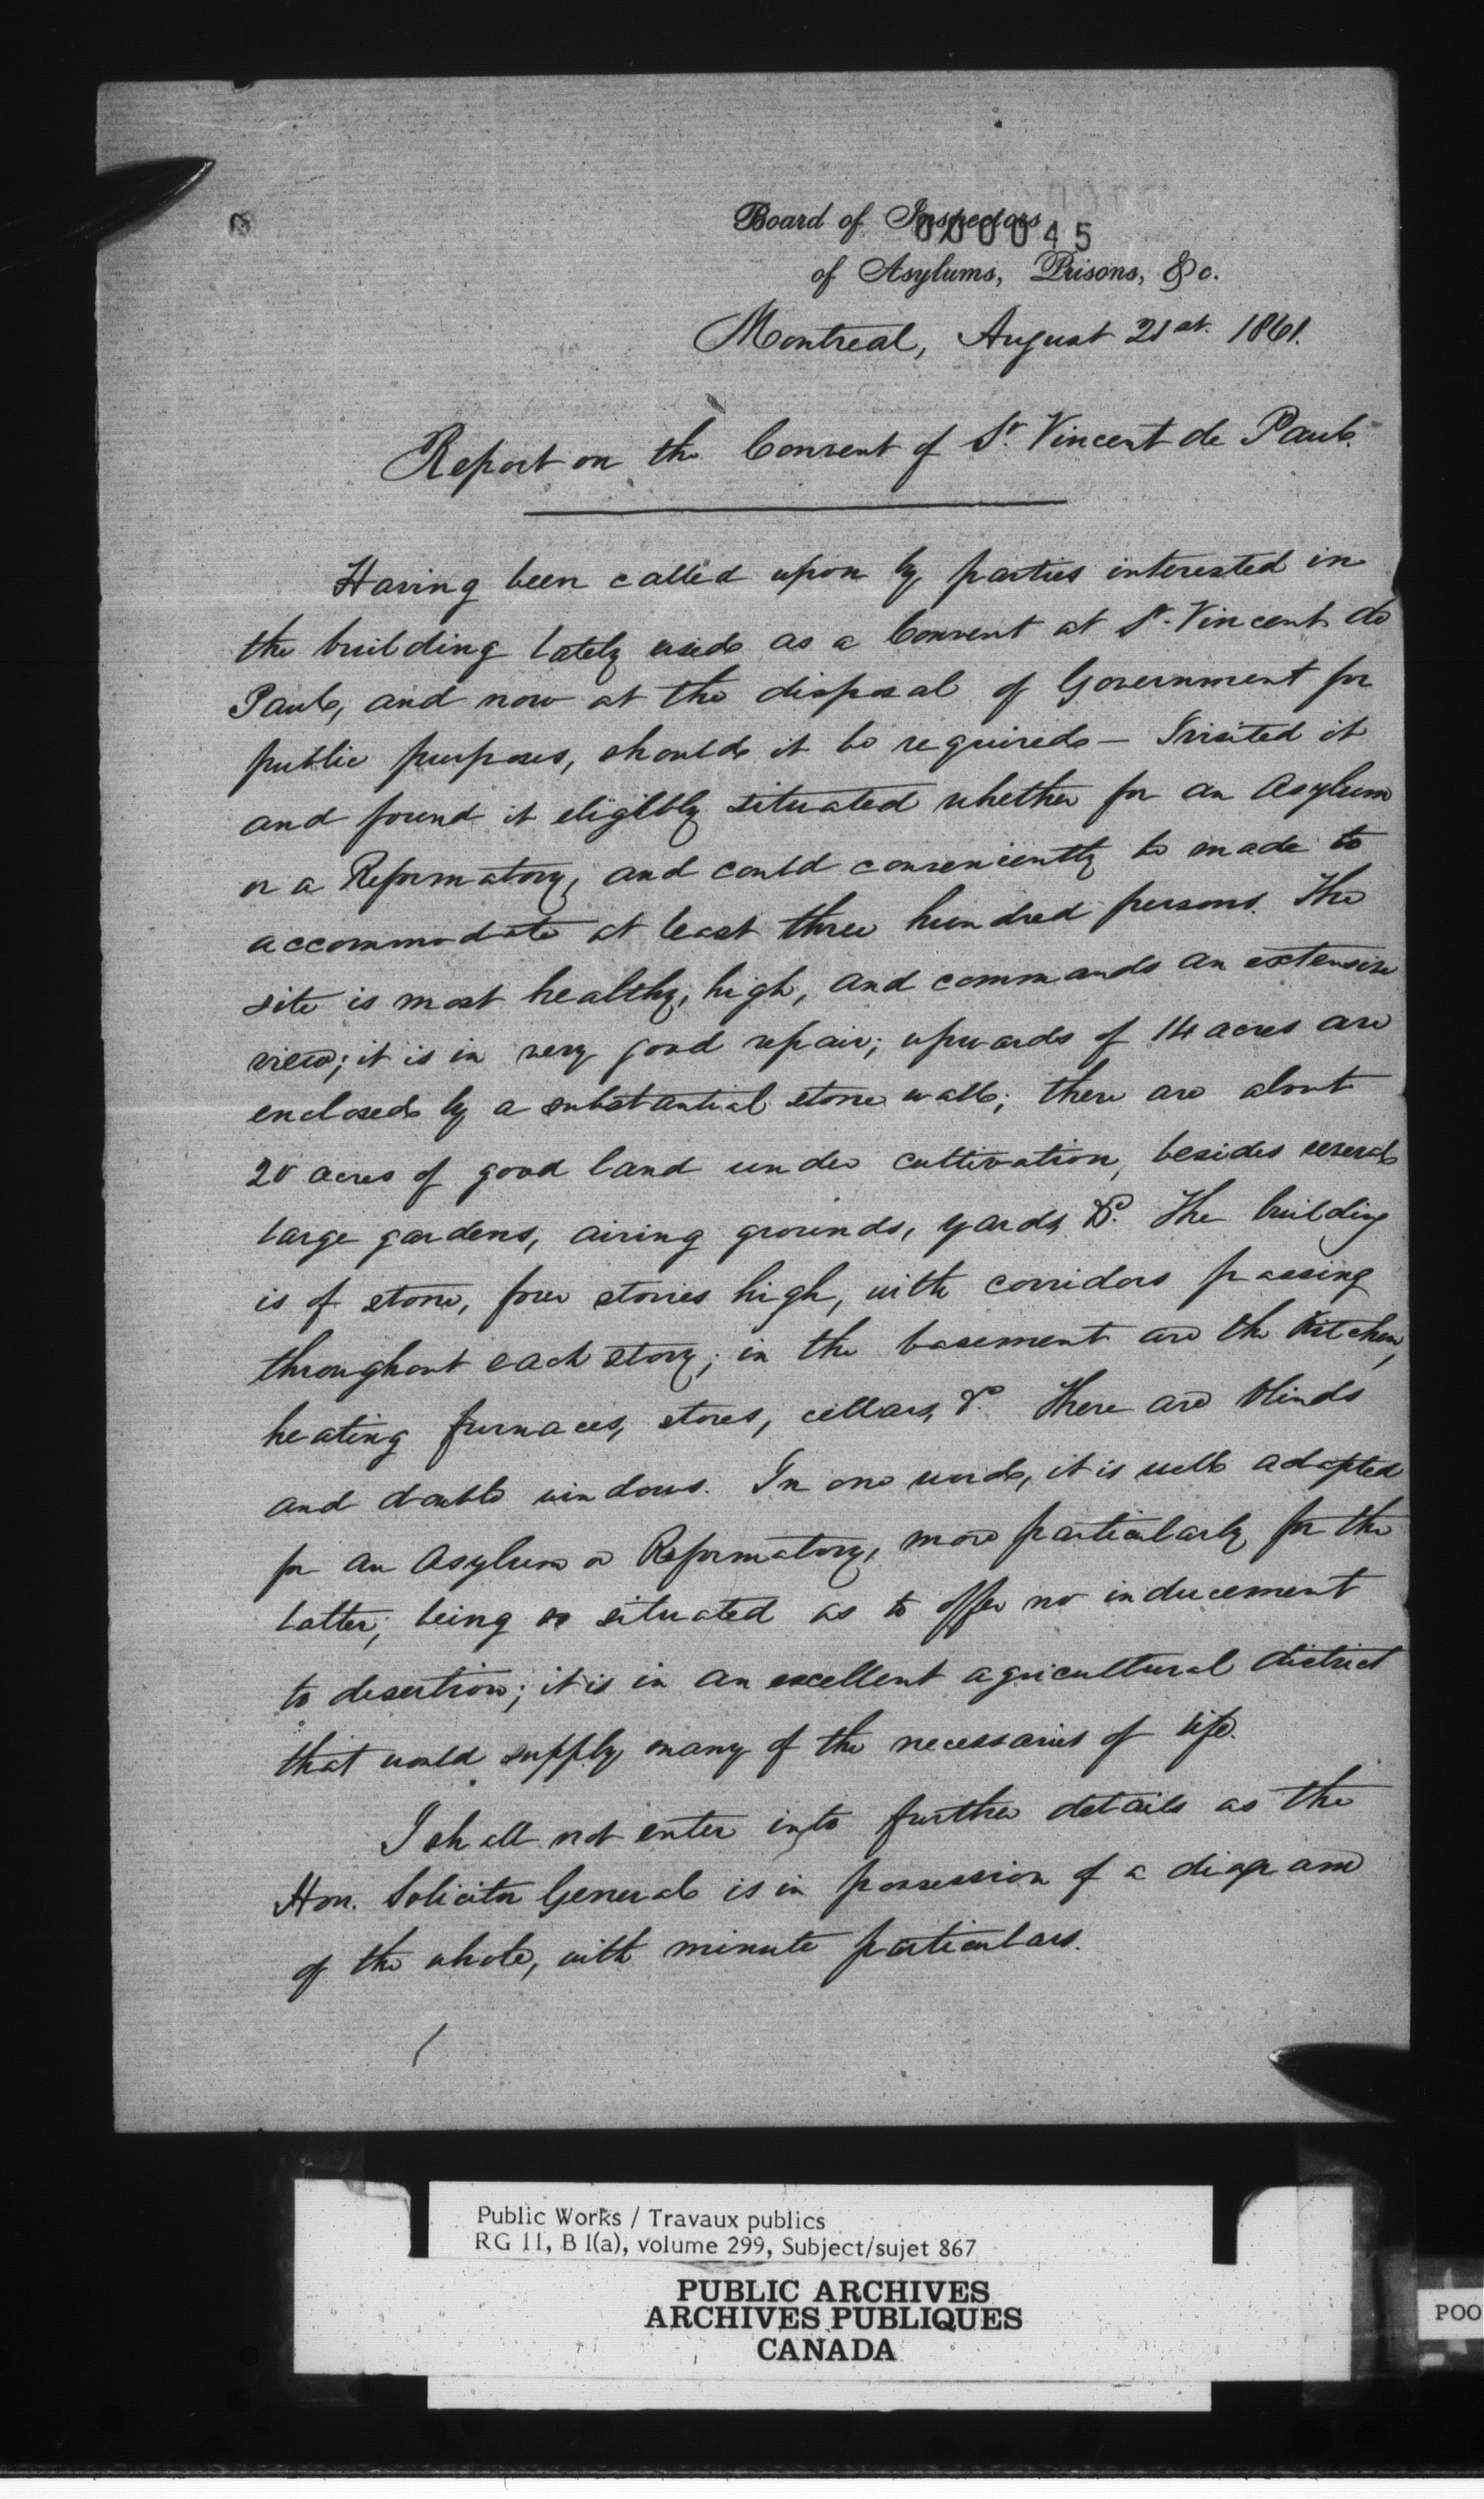 Board of Inspectors
000045
of Asylums, Prisons, &c.
Montreal, August 21st. 1861.
Report on the Convent of St. Vincent de Paul.
Having been called upon by parties interested in
the building lately used as a Convent at St. Vincent de
Paul, and now at the disposal of Government for
public purposes, should it be required — I visited it
and found it eligibly situated whether for an Asylum
or a Reformatory, and could conveniently be made to
accommodate at least three hundred persons. The
site is most healthy, high, and commands an extensive
view; it is in very good repair; upwards of 14 acres are
enclosed by a substantial stone wall; there are about
20 acres of good land under cultivation, besides several
large gardens, airing grounds, yards, &c. The building
is of stone, four stories high, with corridors passing
throughout each story; in the basement are the Kitchen,
heating furnaces, stores, cellars, &c. There are blinds
and double windows. In one word, it is well adapted
for an Asylum or Reformatory, more particularly for the
latter, being so situated as to offer no inducement
to desertion; it is in an excellent agricultural district
that would supply many of the necessaries of life.
I shall not enter into further details as the
Hon. Solicitor General is in possession of a diagram
of the whole, with minute particulars.
Public Works / Travaux publics
RG 11, B 1(a), volume 299, Subject/sujet 867
PUBLIC ARCHIVES
ARCHIVES PUBLIQUES
CANADA
POO